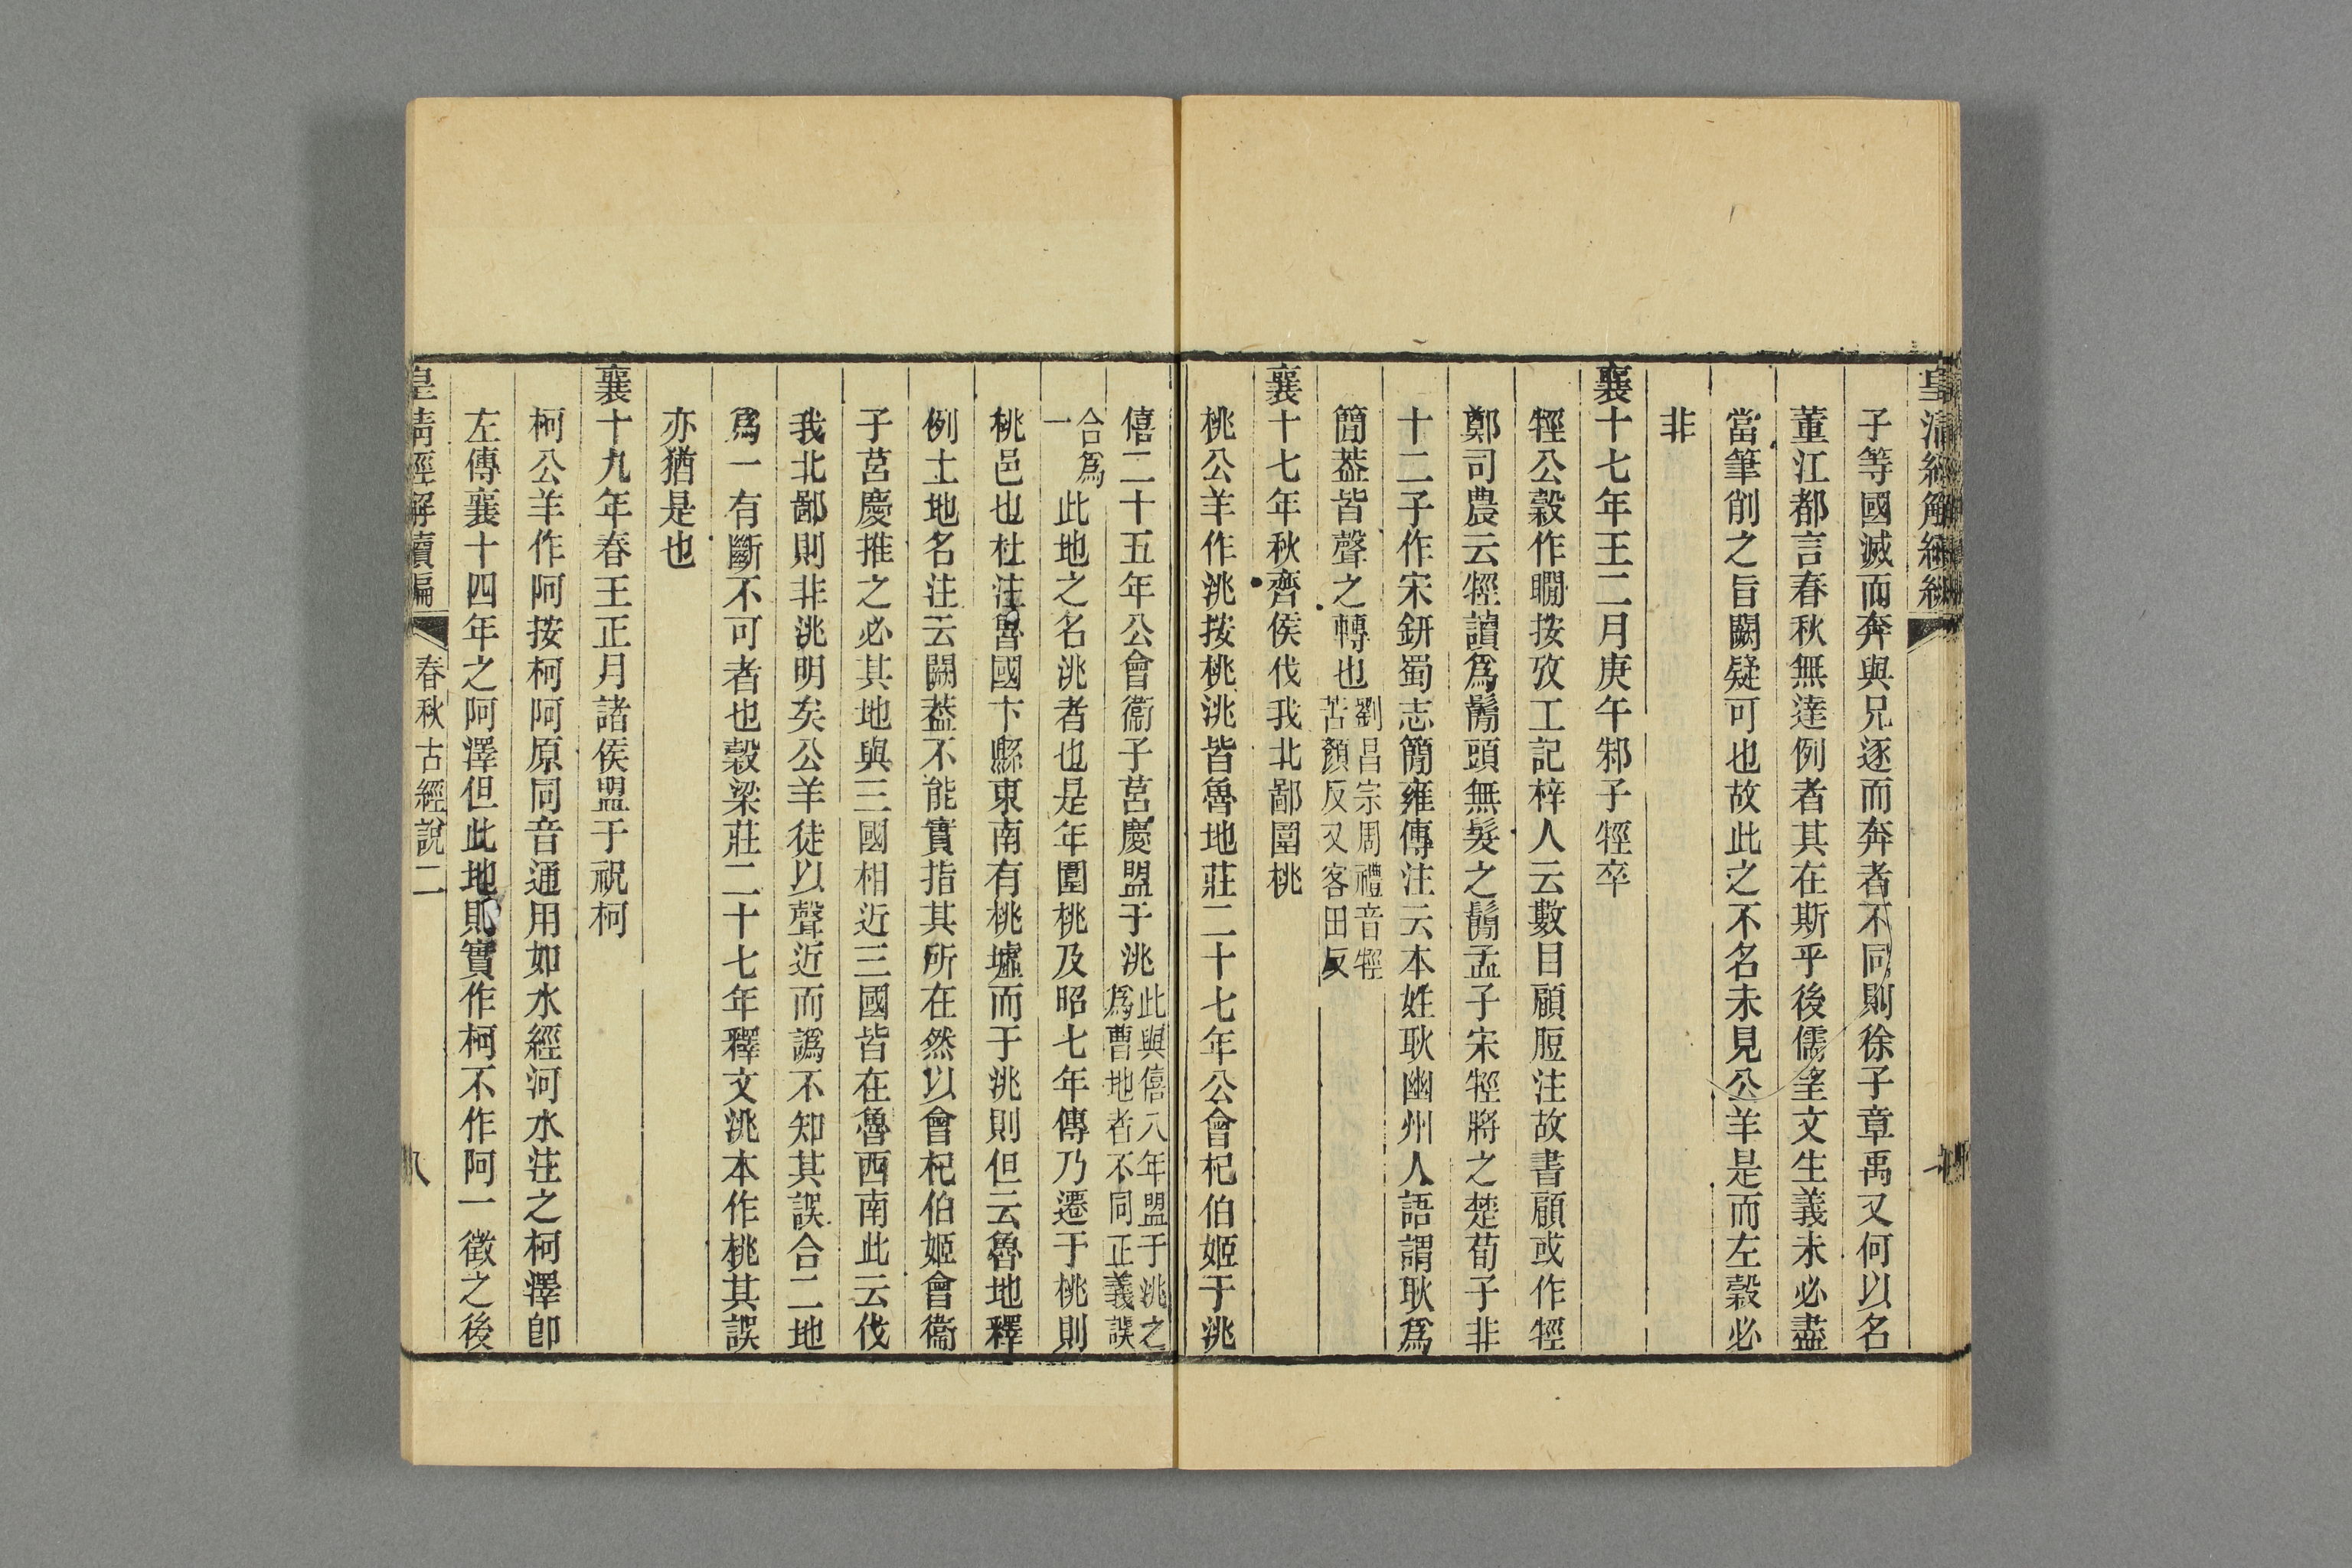 皇清經解續編
子等國滅而奔與兄逐而奔者不同則徐子章禹又何以名
董江都言春秋無達例者其在斯乎後儒望文生義未必盡
當筆削之旨闕疑可也故此之不名未見公羊是而左穀必
非
襄十七年王二月庚午邾子牼卒
牼公穀作瞯按攷工記梓人云數目顧脰注故書顧或作牼
鄭司農云牼讀爲鬜頭無髮之鬜孟子宋牼將之楚荀子非
十二子作宋鈃蜀志簡雍傳注云本姓耿幽州人語謂耿爲
簡葢皆聲之轉也劉昌宗周禮音牼
苦顏反又客田反
襄十七年秋齊侯伐我北鄙圍桃
桃公羊作洮按桃洮皆魯地莊二十七年公會杞伯姬于洮
僖二十五年公會衞子莒慶盟于洮此與僖八年盟于洮之
爲曹地者不同正義誤
合爲
一此地之名洮者也是年圍桃及昭七年傳乃遷于桃則
桃邑也杜注魯國卞縣東南有桃墟而于洮則但云魯地釋
例土地名注云闕葢不能實指其所在然以會杞伯姬會衞
子莒慶推之必其地與三國相近三國皆在魯西南此云伐
我北鄙則非洮明矣公羊徒以聲近而譌不知其誤合二地
爲一有斷不可者也穀梁莊二十七年釋文洮本作桃其誤
亦猶是也
襄十九年春王正月諸侯盟于祝柯
柯公羊作阿按柯阿原同音通用如水經河水注之柯澤卽
左傳襄十四年之阿澤但此地則實作柯不作阿一徵之後
皇清經解續編
春秋古經說二
八